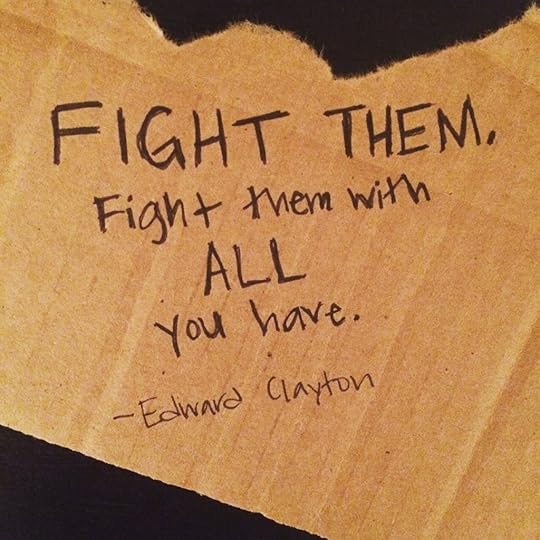 FIGHT THEM.
Fight them with
ALL
you have.
-Edward Clayton